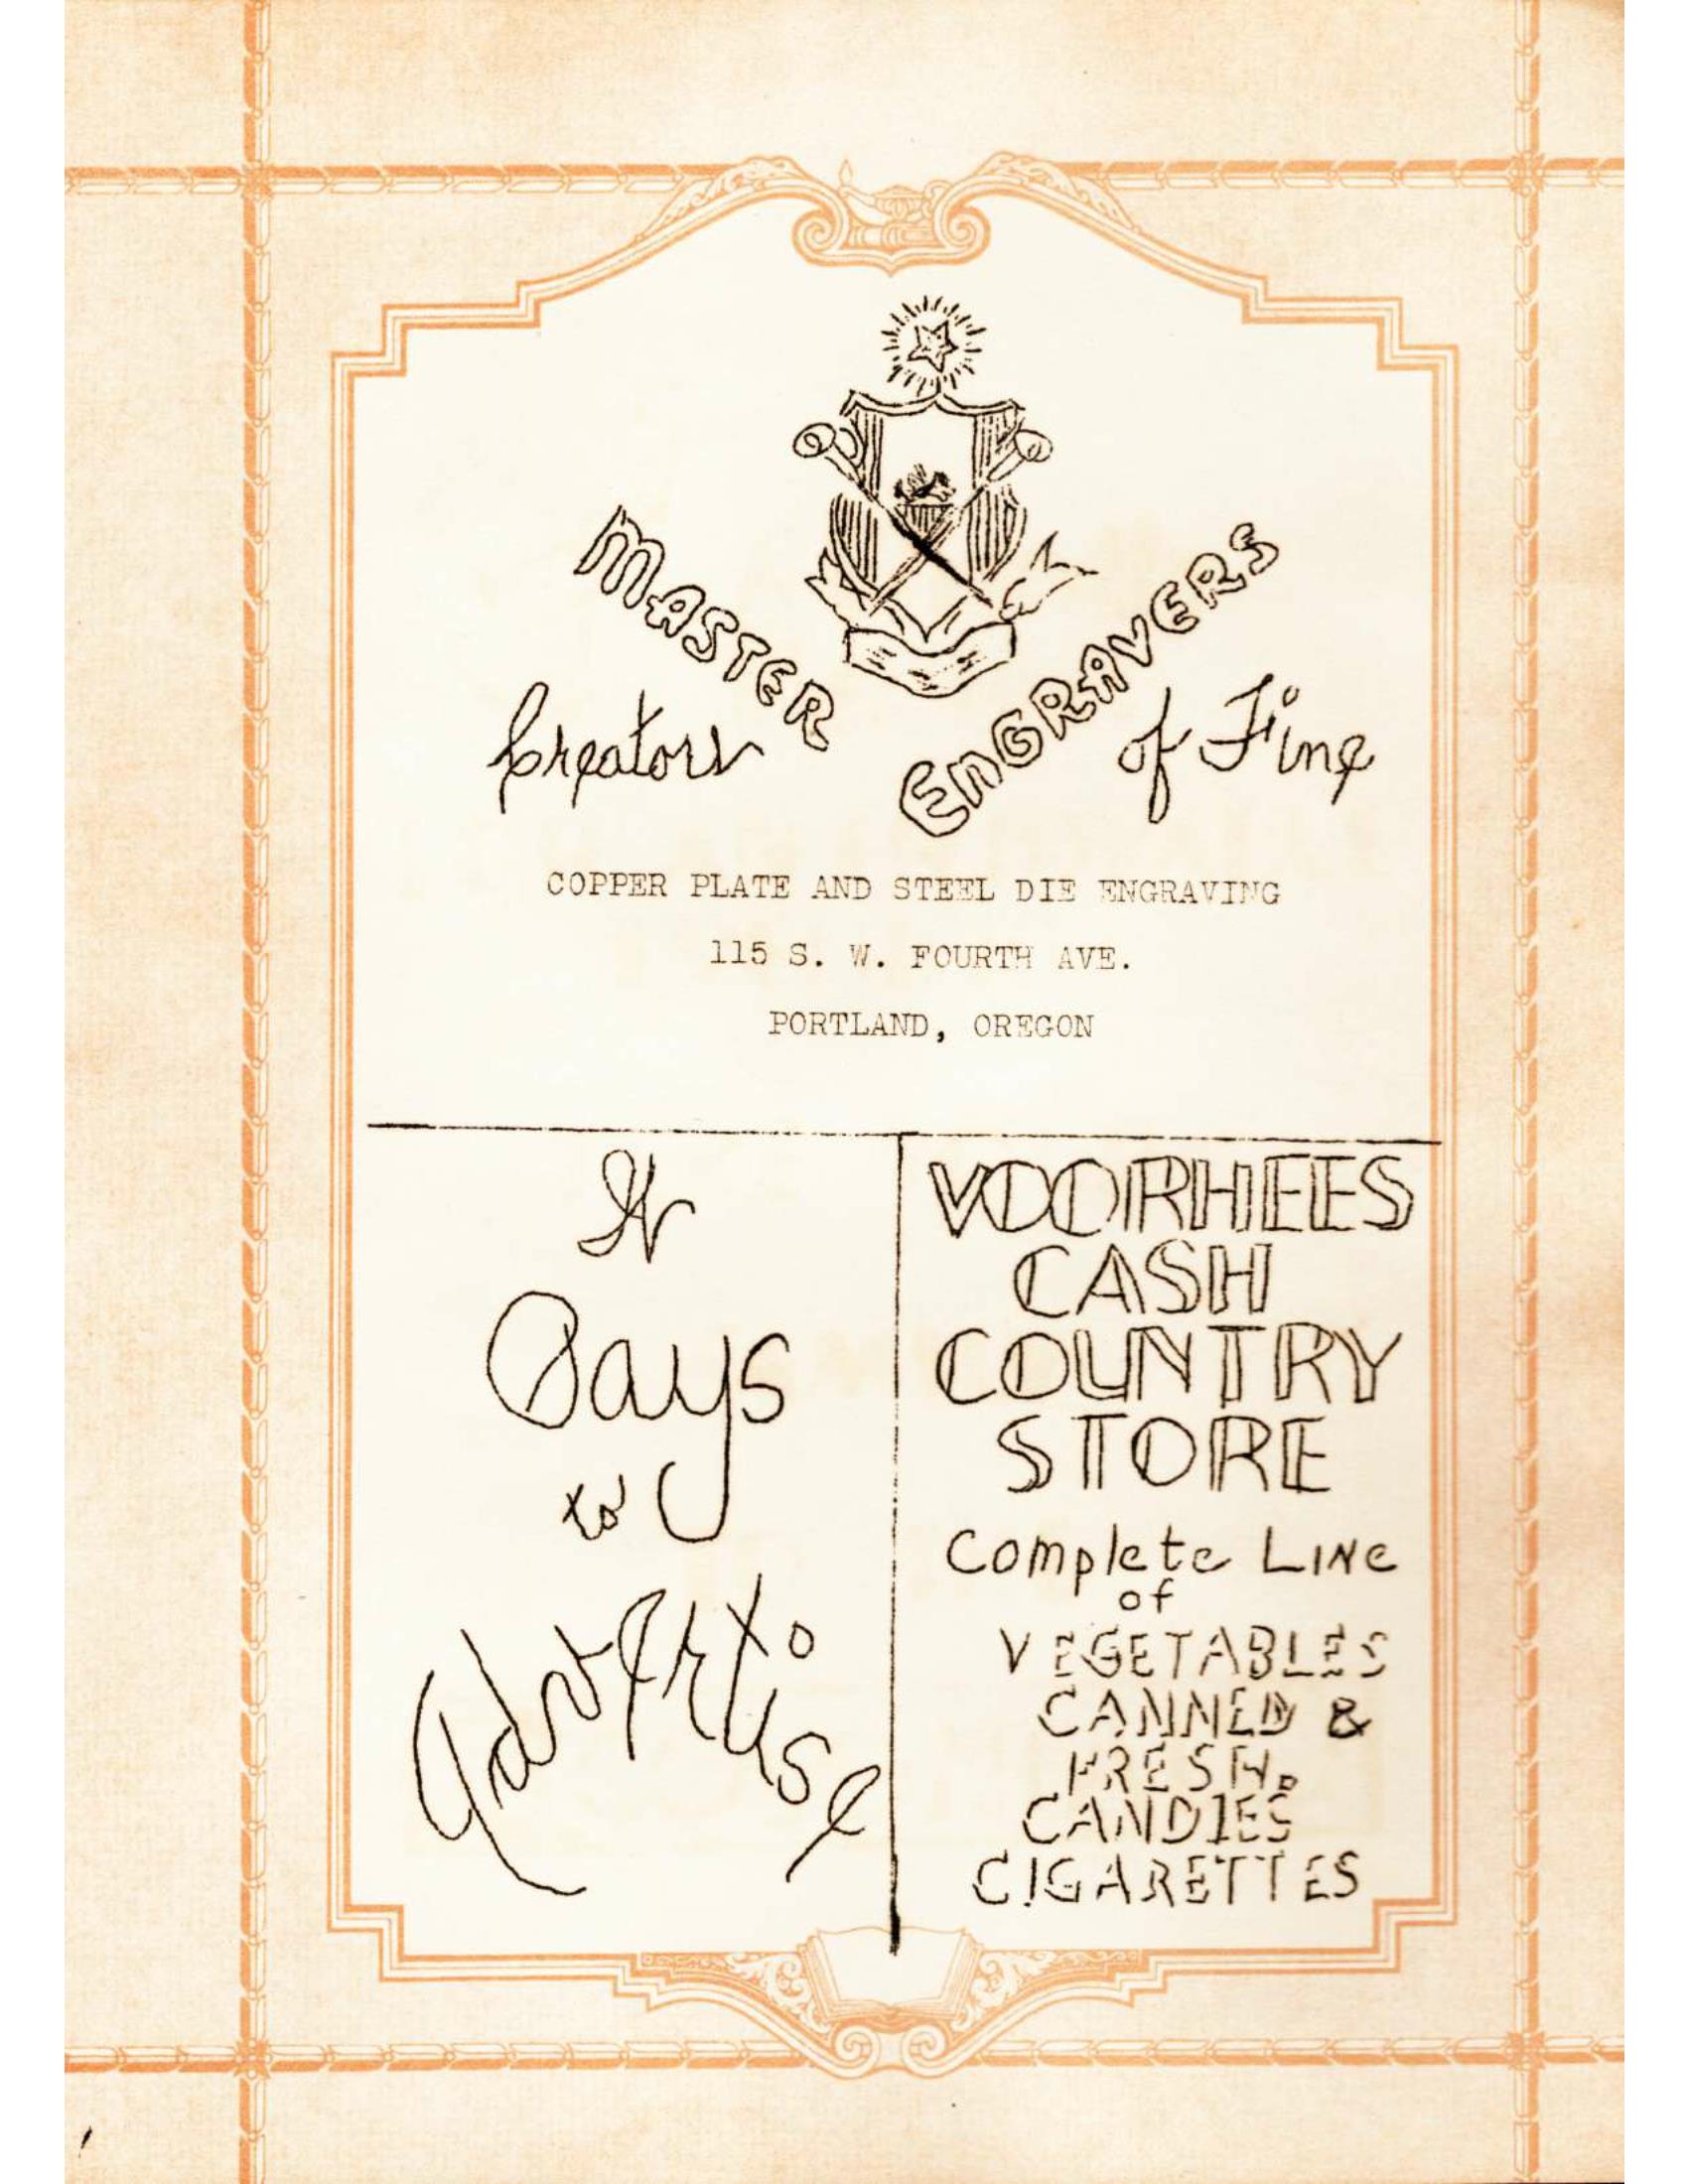 MASTER ENGRAVERS
Creators of Fine
COPPER PLATE AND STEEL DIE ENGRAVING
115 S. W. FOURTH AVE.
PORTLAND, OREGON
It
Pays
to
Advertise
VOORHEES
CASH
COUNTRY
STORE
Complete LiNe
of
VEGETABLES
CANNED &
FRESH.
CANDIES
CIGARETTES